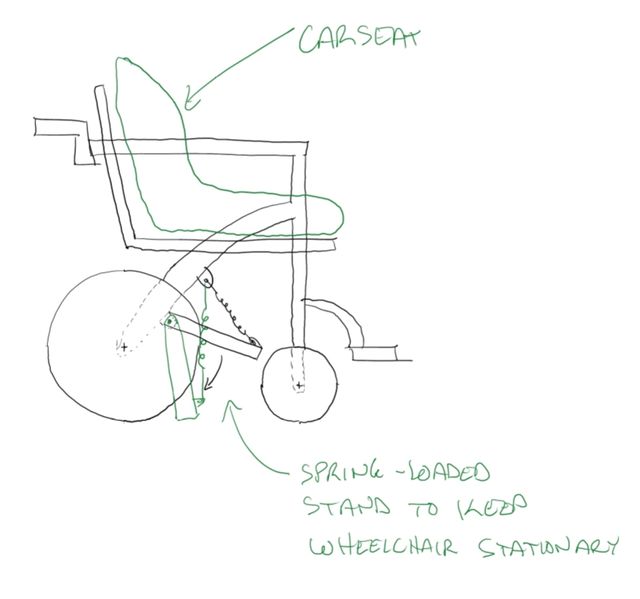 CARSEAT
SPRING-LOADED
STAND TO KEEP
WHEELCHAIR STATIONARY